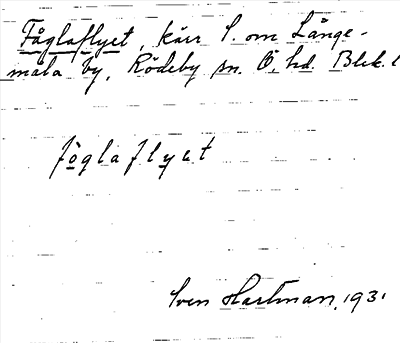 Fåglaflyet, kärr S. om Långe-
måla by, Rödeby sn. Ö. hd. Blek. l
föglaflyet
Sven Hartman, 1931